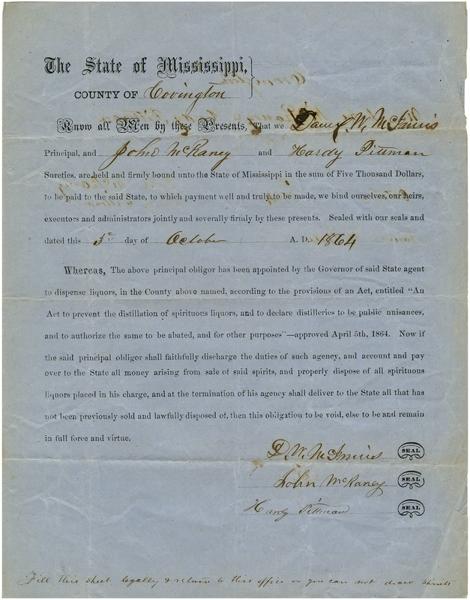 The State of Mississippi,
COUNTY OF Covington
Know all Men by these Presents, That we Daniel W. McInnis
Principal, and John McRaney and Hardy Pittman
Sureties, are held and firmly bound unto the State of Mississippi in the sum of Five Thousand Dollars,
to be paid to the said State, to which payment well and truly to be made, we bind ourselves, our heirs,
executors and administrators jointly and severally firmly by these presents. Sealed with our seals and
dated this 5th day of October A. D. 1864
Whereas, The above principal obligor has been appointed by the Governor of said State agent
to dispense liquors, in the County above named, according to the provisions of an Act, entitled "An
Act to prevent the distillation of spirituous liquors, and to declare distilleries to be public nuisances,
and to authorize the same to be abated, and for other purposes"—approved April 5th, 1864. Now if
the said principal obliger shall faithfully discharge the duties of such agency, and account and pay
over to the State all money arising from sale of said spirits, and properly dispose of all spirituous
liquors placed in his charge, and at the termination of his agency shall deliver to the State all that has
not been previously sold and lawfully disposed of, then this obligation to be void, else to be and remain
in full force and virtue.
D. W. McInnis SEAL
John McRaney SEAL
Hardy Pittman SEAL
Fill this sheet legally & return to this office or you can not draw spirits